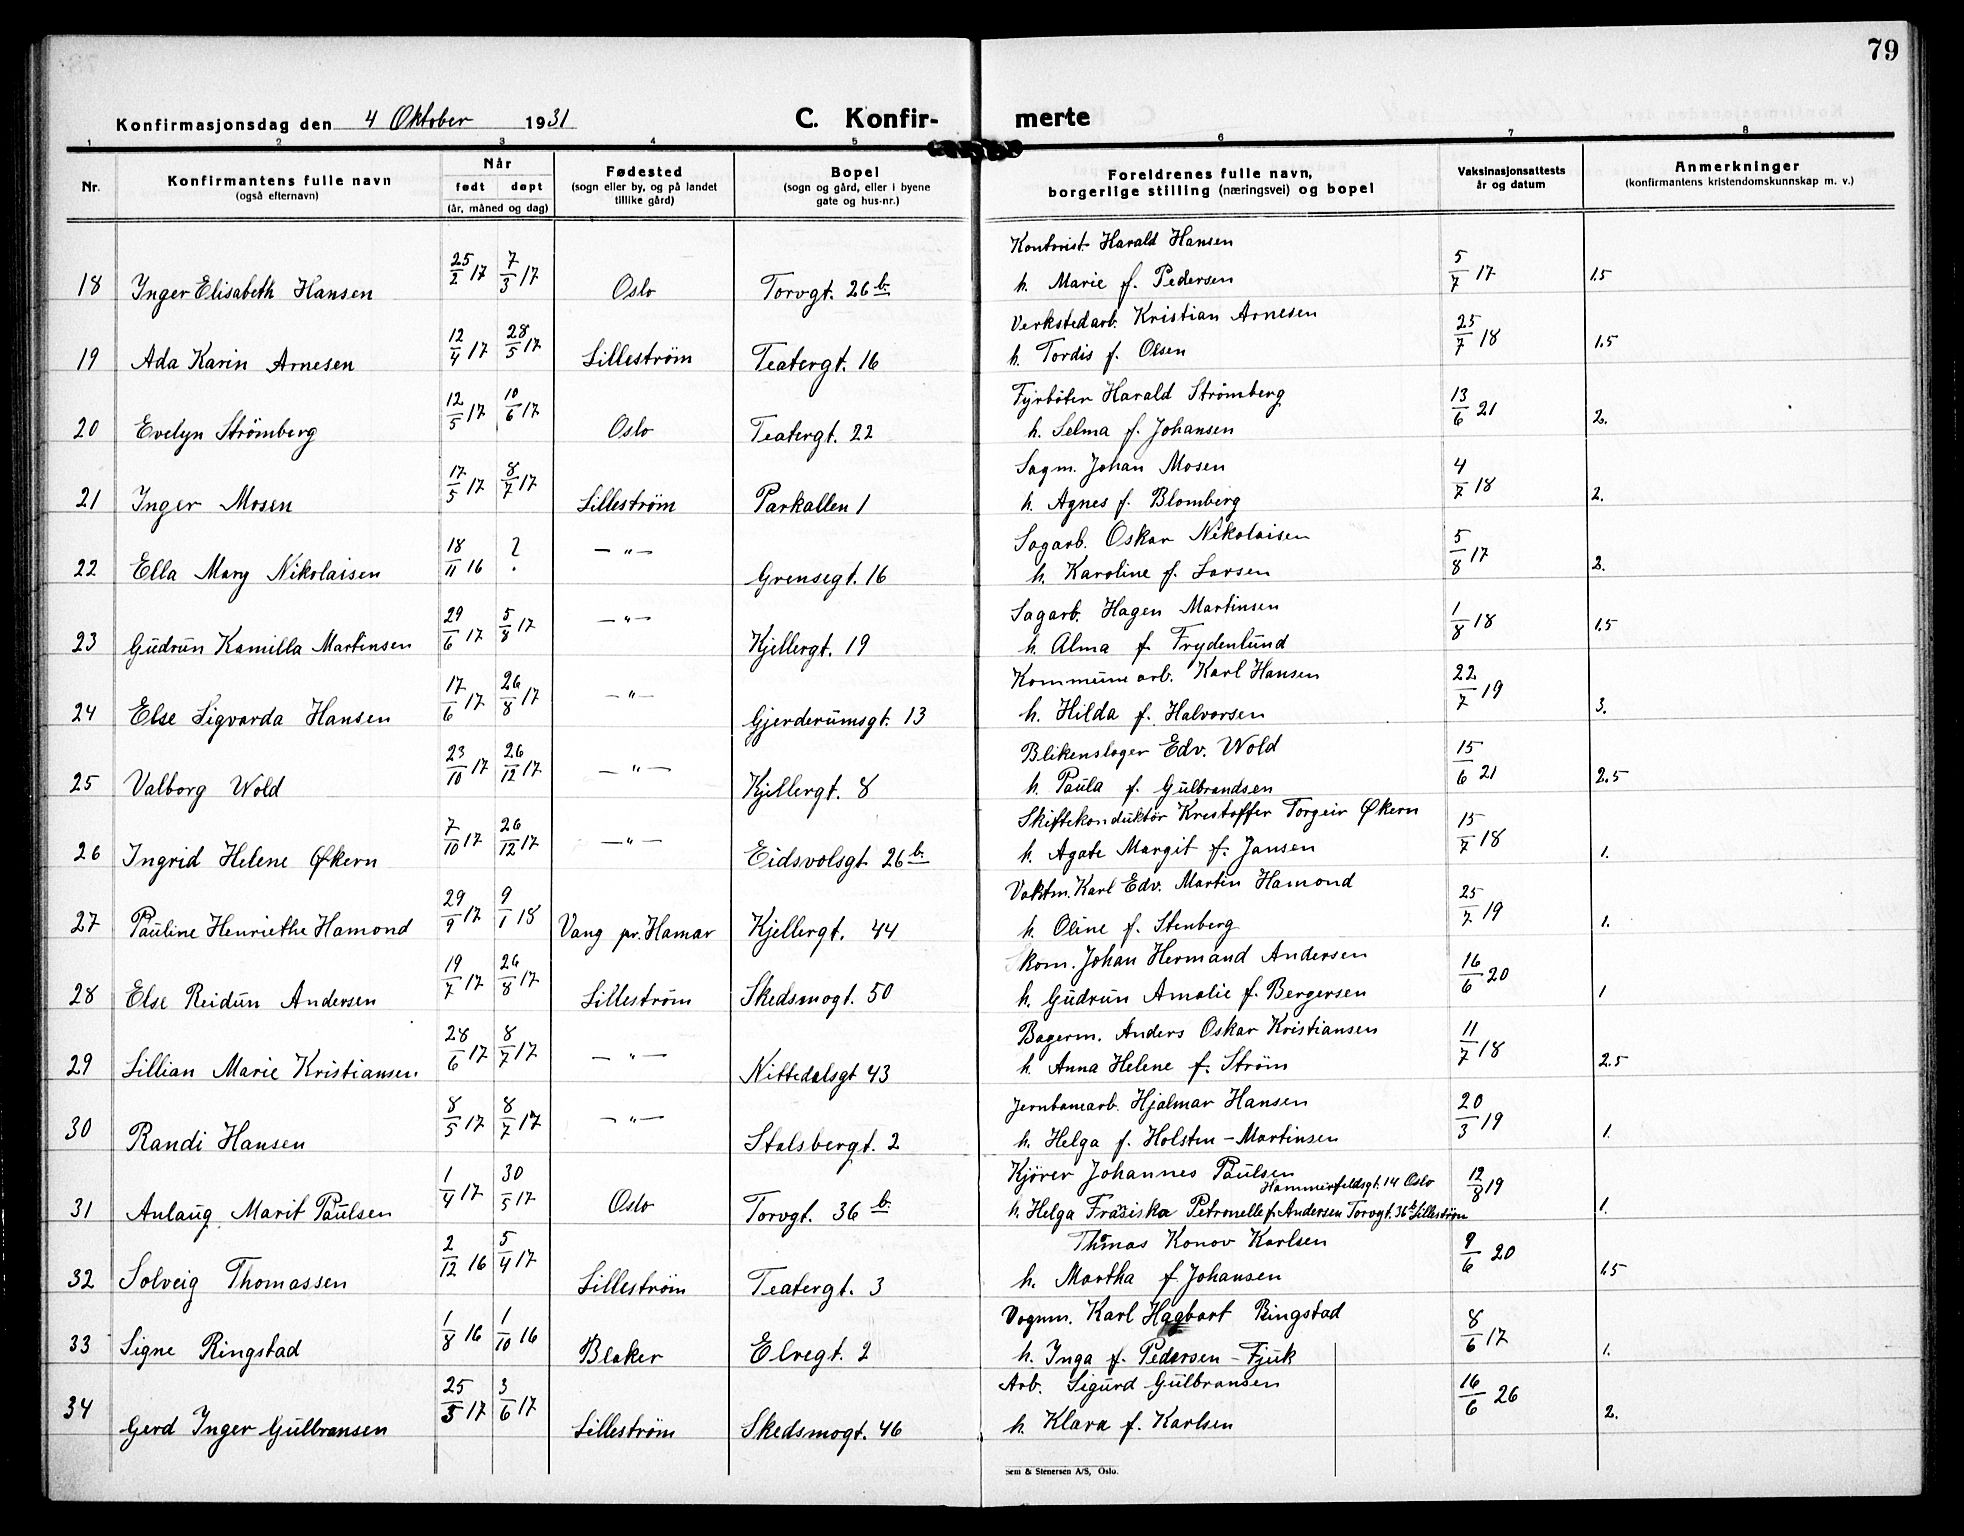 79
Konfirmasjonsdag den 4 Oktober 1931 C. Konfir- merte
1 2 3 4 5 6 7 8
Nr. Konfirmantens fulle navn (også efternavn) Når født døpt (år, måned og dag) Fødested (sogn eller by, og på landet tillike gård) Bopel (sogn og gård, eller i byene gate og hus-nr.) Foreldrenes fulle navn, borgerlige stilling (næringsvei) og bopel Vaksinasjonsattests år og datum Anmerkninger (konfirmantens kristendomskunnskap m. v.)
Kontorist Harald Hansen
18 Inger Elisabeth Hansen 25/2 17 7/3 17 Oslo Torvgt. 26 b. h. Marie f. Pedersen 5/7 17 1.5
Verkstedarb. Kristian Arnesen
19 Ada Karin Arnesen 12/4 17 28/5 17 Lilleström Teatergt. 16 h. Tordis f. Olsen 25/7 18 1.5
Fyrböter Harald Strømberg
20 Evelyn Strømberg 12/5 17 10/6 17 Oslo Teatergt. 22 h. Selma f. Johansen 13/6 21 2.
Sagm. Johan Mosen
21 Inger Mosen 17/5 17 8/7 17 Lilleström Parkallen 1 h. Agnes f. Blomberg 4/7 18 2.
Sagarb. Oskar Nikolaisen
22 Ella Mary Nikolaisen 18/11 16 ? — " — Grensegt. 16 h. Karoline f. Larsen 5/8 17 2.
Sagarb. Hagen Martinsen
23 Gudrun Kamilla Martinsen 29/6 17 5/8 17 — " — Kjellergt. 19 h. Alma f. Frydenlund 1/8 18 1.5
Kommune arb. Karl Hansen
24 Else Sigvarda Hansen 17/6 17 26/8 17 — " — Gjerderumsgt. 13 h. Hilda f. Halvorsen 22/7 19 3.
Blikenslager Edv. Wold
25 Valborg Wold 23/10 17 26/12 17 — " — Kjellergt. 8 h. Paula f. Gulbrandsen 15/6 21 2.5
Skiftekonduktör Kristoffer Torgeir Økern
26 Ingrid Helene Økern 7/10 17 26/12 17 — " — Eidsvolsgt 26 b. h. Agate Margit f. Jansen 15/7 18 1.
Vaktm. Karl Edv. Martin Hamond
27 Pauline Henriethe Hamond 29/9 17 9/1 18 Vang pr. Hamar Kjellergt. 44 h. Oline f. Stenberg 25/7 19 1.
Skom. Johan Hermand Andersen
28 Else Reidun Andersen 19/7 17 26/8 17 Lilleström Skedsmogt. 50 h. Gudrun Amalie f. Bergersen 16/6 20 1
Bagerm. Anders Oskar Kristiansen
29 Lillian Marie Kristiansen. 28/6 17 8/7 17 — " — Nittedalsgt 43 h. Anna Helene f. Ström 11/7 18 2.5
Jernbanearb. Hjalmar Hansen
30 Randi Hansen 8/5 17 8/7 17 — " — Stalsbergt. 2 h. Helga f. Holsten - Martinsen 20/3 19 1.
Kjører Johannes Paulsen Hammerfeldsgt. 14 Oslo
31 Anlaug Marit Paulsen 1/4 17 30/5 17 Oslo Torvgt. 36 b. h. Helga Frasiska Petronelle f. Andersen Torvgt. 36 b Lilleström 12/8 19 1.
Thomas Konov Karlsen
32 Solveig Thomassen 2/12 16 5/4 17 Lilleström Teatergt. 3 h. Martha f. Johansen 9/6 20 1.5
Vognm. Karl Hagbart Ringstad
33 Signe Ringstad 1/8 16 1/10 16 Blaker Elvegt. 2 h. Inga f. Pedersen - Fjuk 8/6 17 1.
Arb. Sigurd Gulbransen
34 Gerd Inger Gulbransen 25/3 17 3/6 17 Lilleström Skedsmogt. 46 h. Klara f. Karlsen 16/6 26 2.
Sem & Stenersen A/S, Oslo.